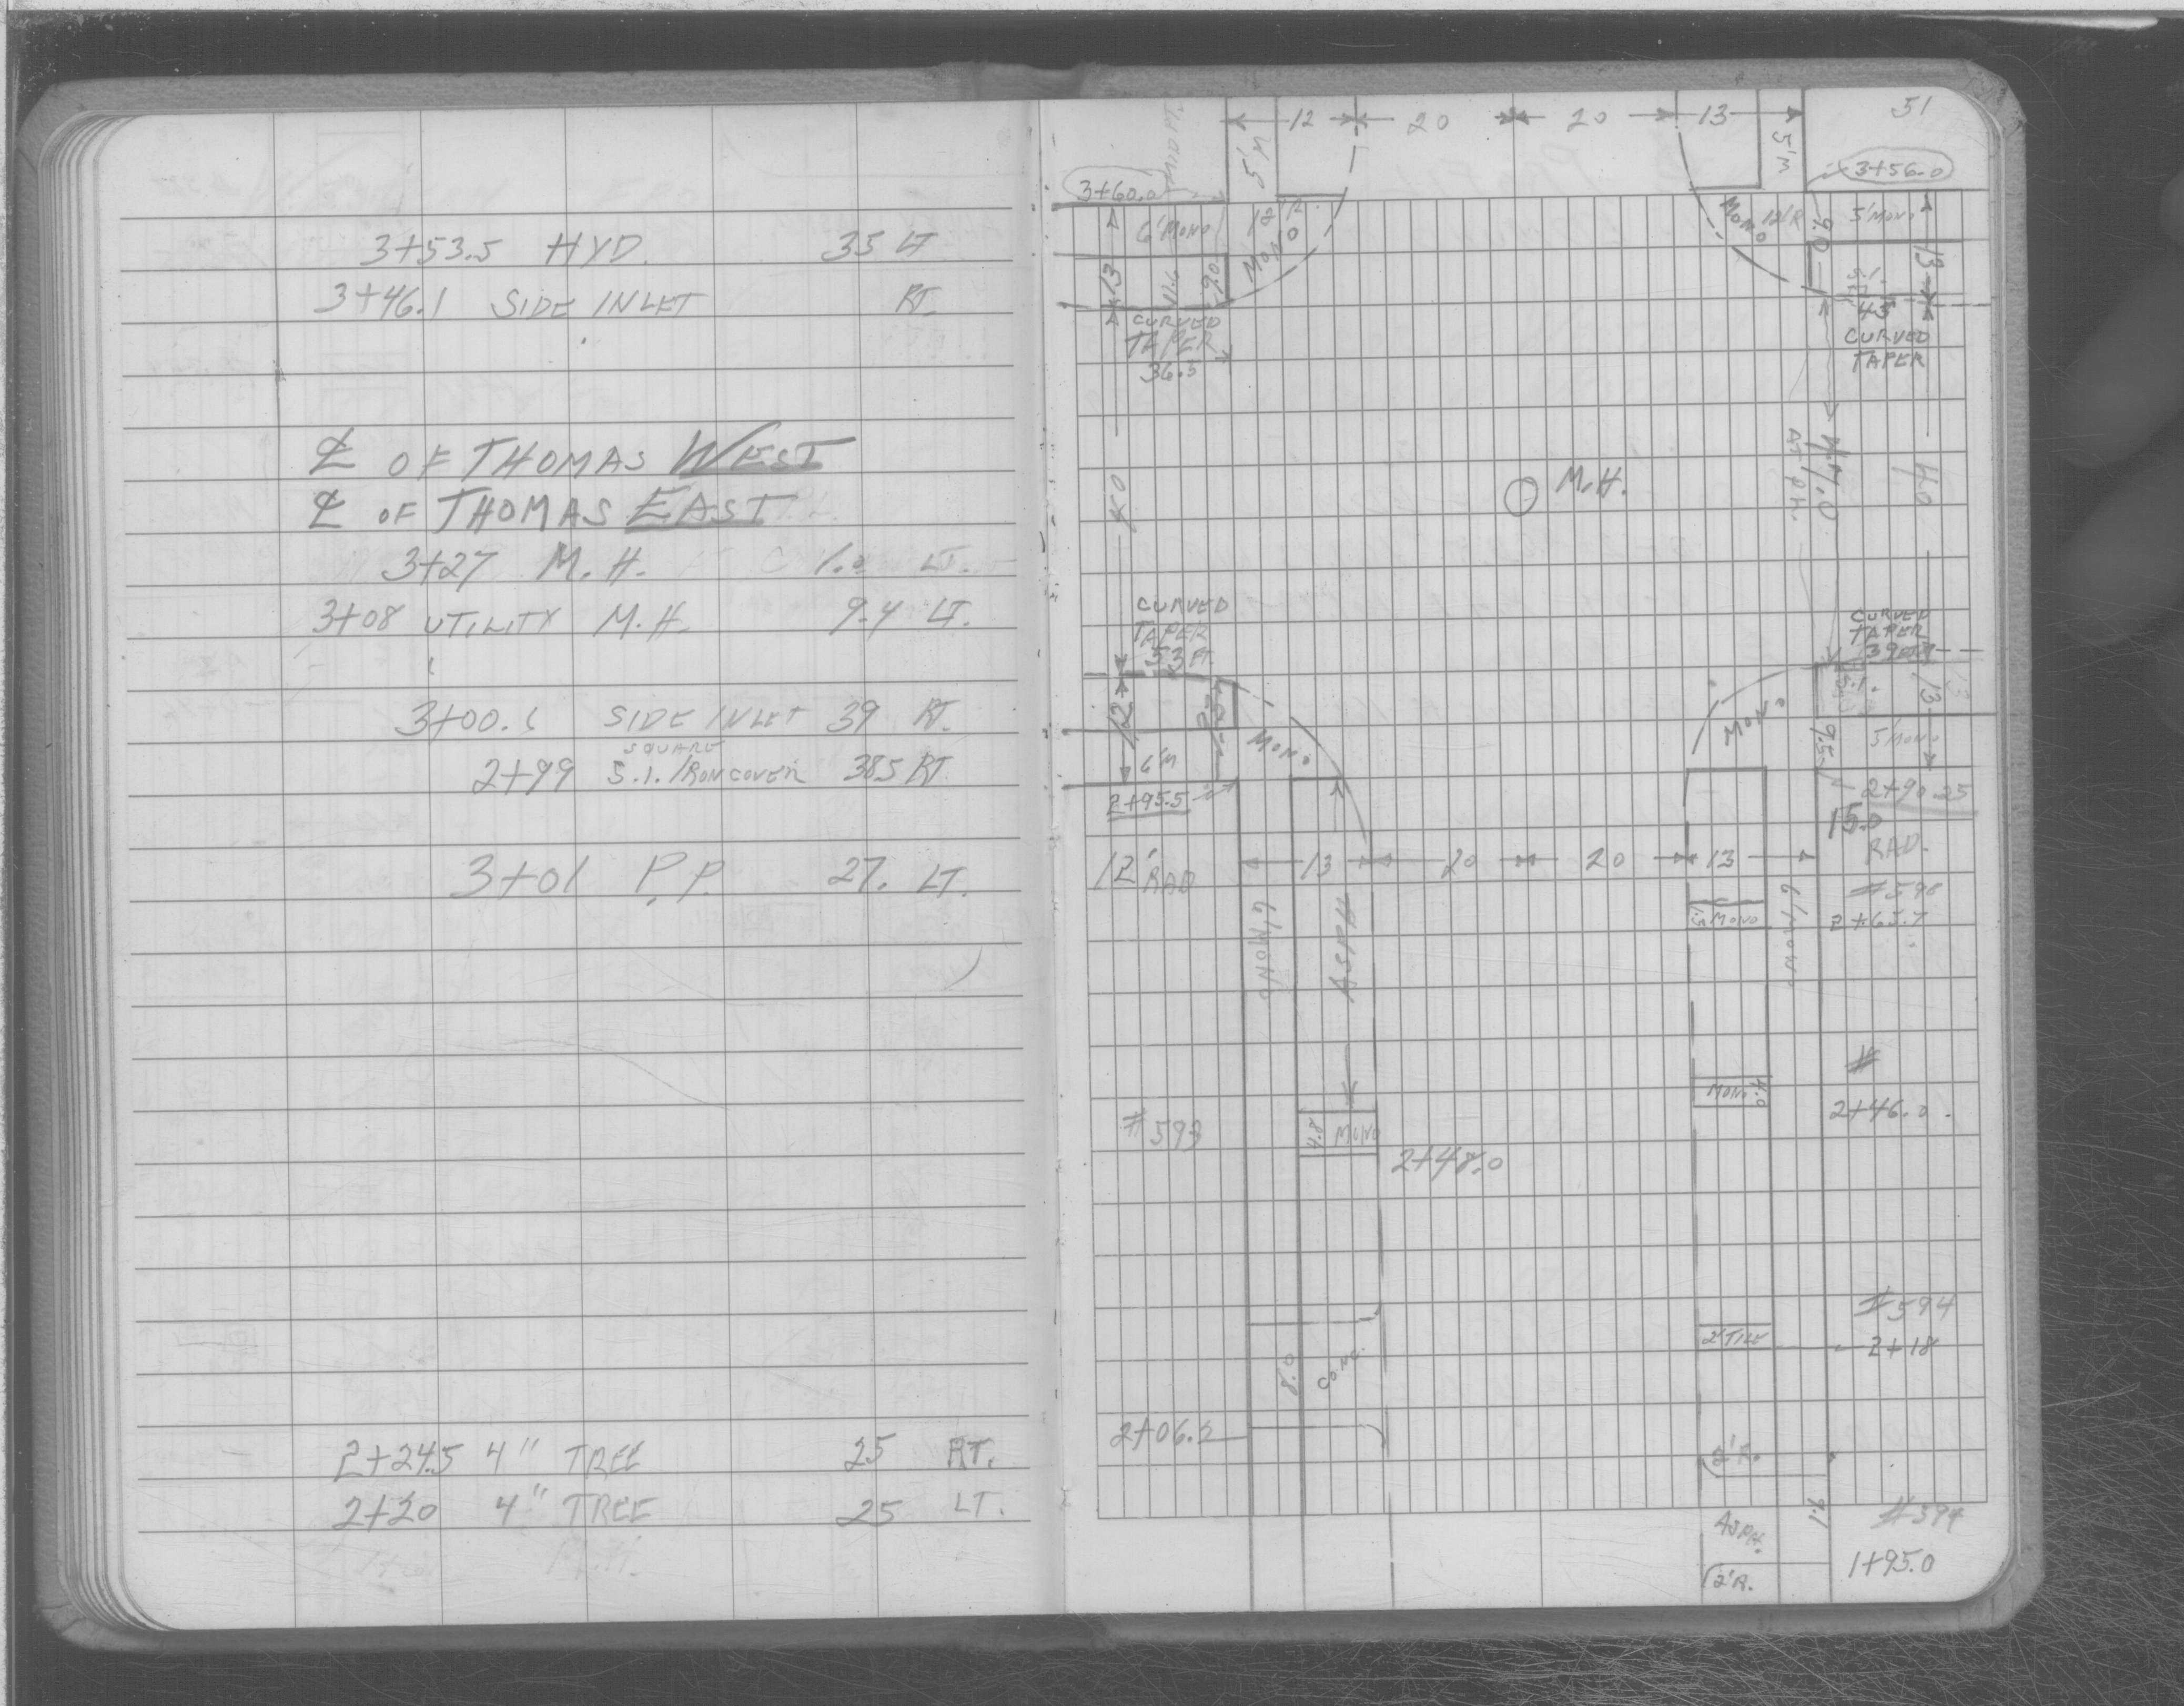 3+53.5 HYD. 35 LT
3+46.1 SIDE INLET RT.
℄ OF THOMAS WEST
℄ OF THOMAS EAST
3+27 M.H. LT.
3+08 UTILITY M.H. 9.4 LT.
3+00.6 SIDE INLET 39 RT.
SQUARE
2+99 S.I. IRON COVER 38.5 RT
3+01 P.P. 27. LT.
2+24.5 4" TREE 25 RT.
2+20 4" TREE 25 LT.
51
12 20 20 13
5'M
5'M
3+60.0
3+56.0
6'MONO
12'R.
MONO
MONO 12'R
9.0
5'MONO
13
11.6
9.0
13
CURVED
TAPER
36.5
43
CURVED
TAPER
40
M.H.
47.0
AT PK.
40
CURVED
TAPER
53 FT.
CURVED
TAPER
39
12
6'M
MONO
MONO
S.I.
9.5
13
5'MONO
2+95.5
2+90.25
12' RAD
15.0
RAD.
13 20 20 13
6'MONO
ASPH
MONO
6'MONO
2+65.7
#
MONO 4.0
2+46.0
#593
4.8 MONO
2+48.0
#594
2'TILE
2+18
8.0
CONC.
2+06.2
2'R.
9.1
ASPH.
#594
2'R.
1+95.0